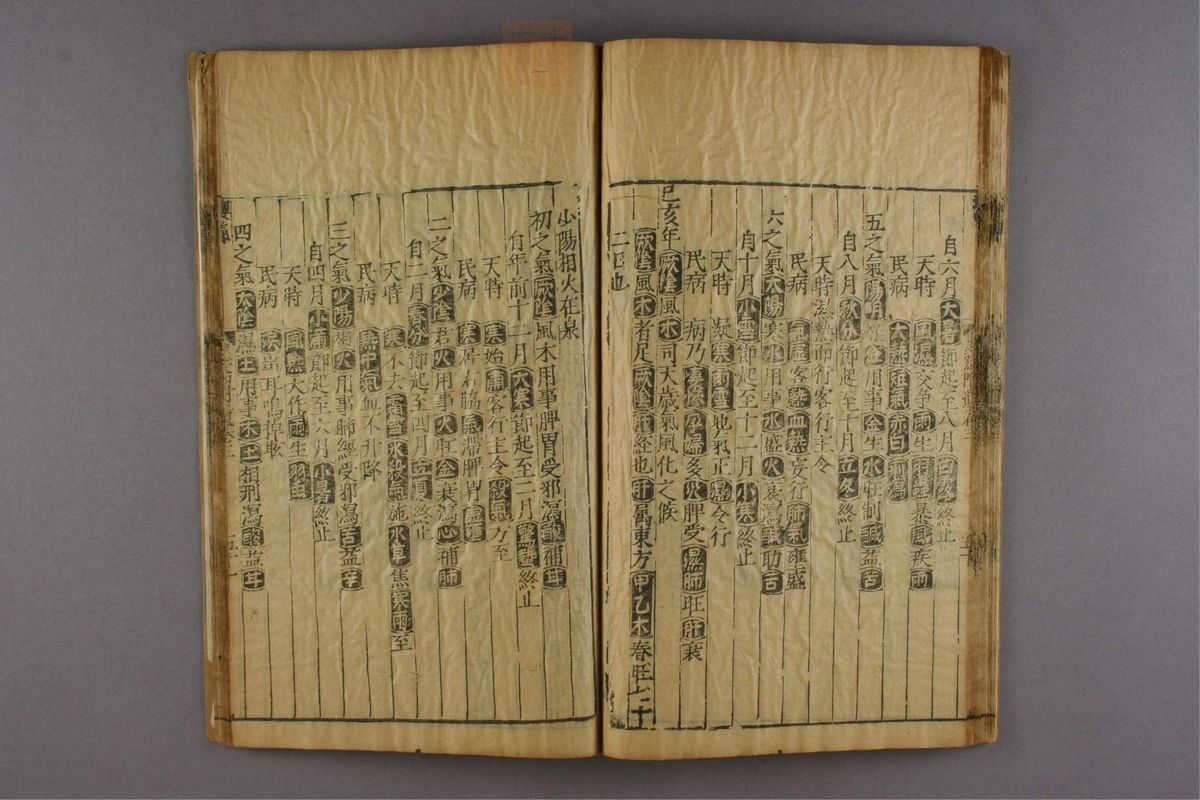 自六月大暑節起至八月白露終止
天時 風濕交爭雨生暴風疾雨
民病 大熱短氣赤白痢瀉
五之氣陽明用事金生水旺制鹹益苦
自八月秋分節起至十月立冬終止
天時濕熱而行客行主令
民病 氣虛客熱血熱妄行肺氣雍盛
六之氣太陽寒水用事水盛火衰瀉鹹助苦
自十月小雪節起至十二月小寒終止
天時 凝寒雨雪地氣正濕令行
民病 病乃凄慘孕婦多火脾受濕肺旺肝衰
巳亥年厥陰風木司天歲氣風化之候
厥陰風木者足厥陰肝經也肝属東方甲乙木春旺七十
二日也
少陽相火在泉
初之氣厥陰風木用事脾胃受邪瀉酸補甘
自年前十二月大寒節起至二月驚蟄終止
天時 寒始肅客行主令殺氣方至
民病 寒右脇氣滯脾胃虛
二之氣少陰君火用事火旺金衰瀉心補肺
自二月春分節起至四月立夏終止
天時 寒不去霜雪水殺氣施水草焦寒雨至
民病 熱中氣血不升降
三之氣少陽相火用事肺經受邪瀉苦益辛
自四月小滿節起至六月小暑終止
天時 風熱大作雨生羽虫
民病 淚出耳鳴掉眩
四之氣太陰濕土用事木土相刑瀉酸益甘